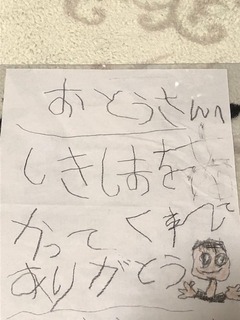 おとうさんへ
しきしまを
かってくれて
ありがとう